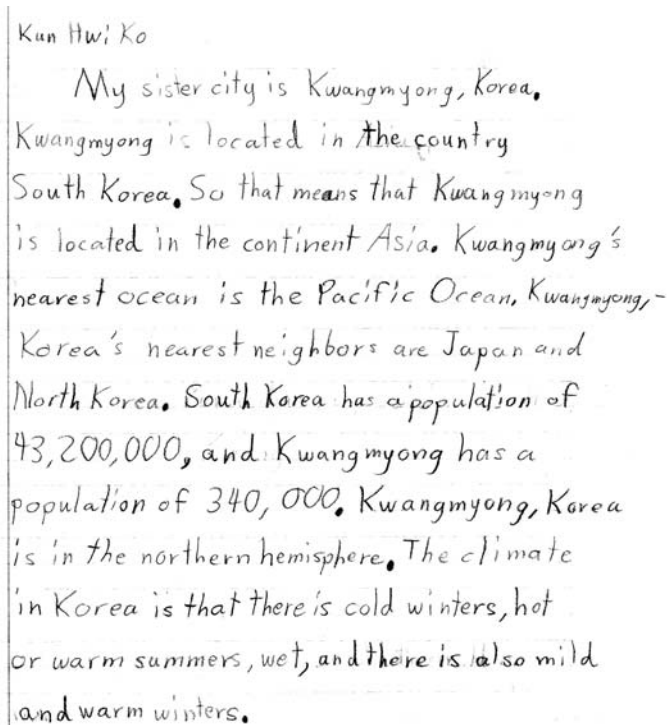 Kun Hwi Ko
My sister city is Kwangmyong, Korea.
Kwangmyong is located in the country
South Korea. So that means that Kwangmyong
is located in the continent Asia. Kwangmyong's
nearest ocean is the Pacific Ocean. Kwangmyong,-
Korea's nearest neighbors are Japan and
North Korea. South Korea has a population of
43,200,000, and Kwangmyong has a
population of 340,000. Kwangmyong, Korea
is in the northern hemisphere. The climate
in Korea is that there is cold winters, hot
or warm summers, wet, and there is also mild
and warm winters.